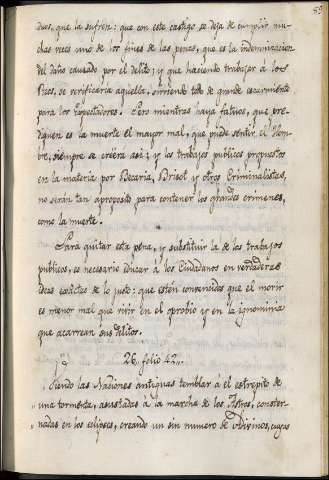 59
deas, que la sufren: que con este castigo se deja de cumplir mu-
chas veces uno de los fines de las penas, que es la indemnizacion
del daño causado por el delito; y que haciendo trabajar á los
Reos, se verificaria aquella, sirviendo todo de grande escarmiento
para los Espectadores. Pero mientras haya fatuos, que pre-
diquen es la muerte el mayor mal, que puede sentir el Hom-
bre, siempre se creéra asi; y los trabajos publicos propuestos
en la materia por Becaria, Brisot y otros Criminalistas,
no serán tan aproposito para contener los grandes crimenes,
como la muerte.
Para quitar esta pena, y substituir la de los trabajos
publicos, es necesario educar á los Ciudadanos en verdaderas
ideas exactas de lo justo: que esten convencidos que el morir
es menor mal que vivir en el oprobio y en la ignominia
que acarrean sus delitos.
26 folio 42,,.
Viendo las Naciones antiguas temblar á el estrepito de
" una tormenta, asustadas á la marcha de los Astros, conster-
" nadas en los eclipses, creando un sin numero de Adivinos, cuyos